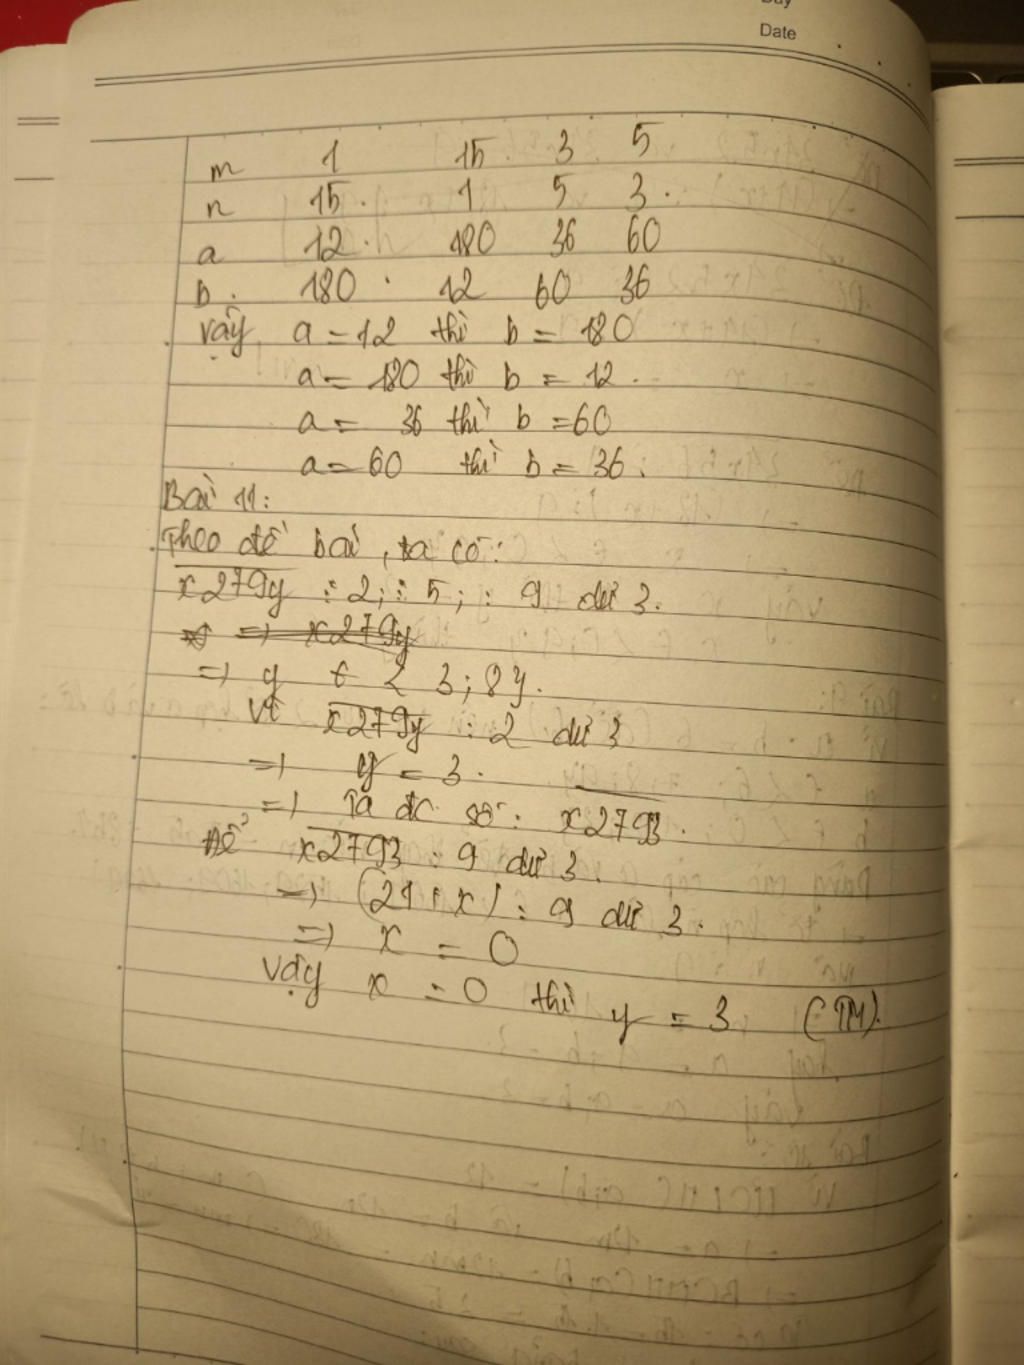 Day
Date
m 1 15 3 5
n 15. 1 5 3.
a 12. 180 36 60
b. 180 . 12 60 36
vậy a = 12 thì b = 180
a = 180 thì b = 12.
a = 36 thì b = 60
a = 60 thì b = 36.
Bài 11:
Theo đề bài, ta có:
x279y : 2; : 5; : 9 dư 3.
=) x279y
=) y ∈ { 3; 8}.
Vì x279y : 2 dư 3
=) y = 3.
=) Ta đc số: x2793.
Để x2793 : 9 dư 3.
=) (21+x) : 9 dư 3.
=) x = 0
Vậy x = 0 thì y = 3 (TM).